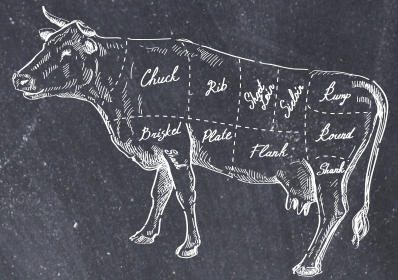 Chuck
Rib
Short
Loin
Sirloin
Rump
Brisket
Plate
Flank
Round
Shank